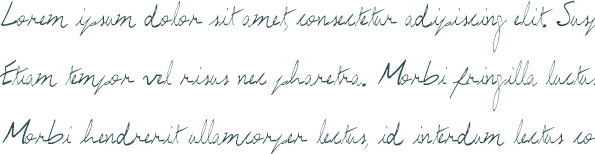 Lorem ipsum dolor sit amet, consectetur adipiscing elit. Susp
Etiam tempor vel risus nec pharetra. Morbi fringilla luctus
Morbi hendrerit ullamcorper lectus, id interdum lectus co